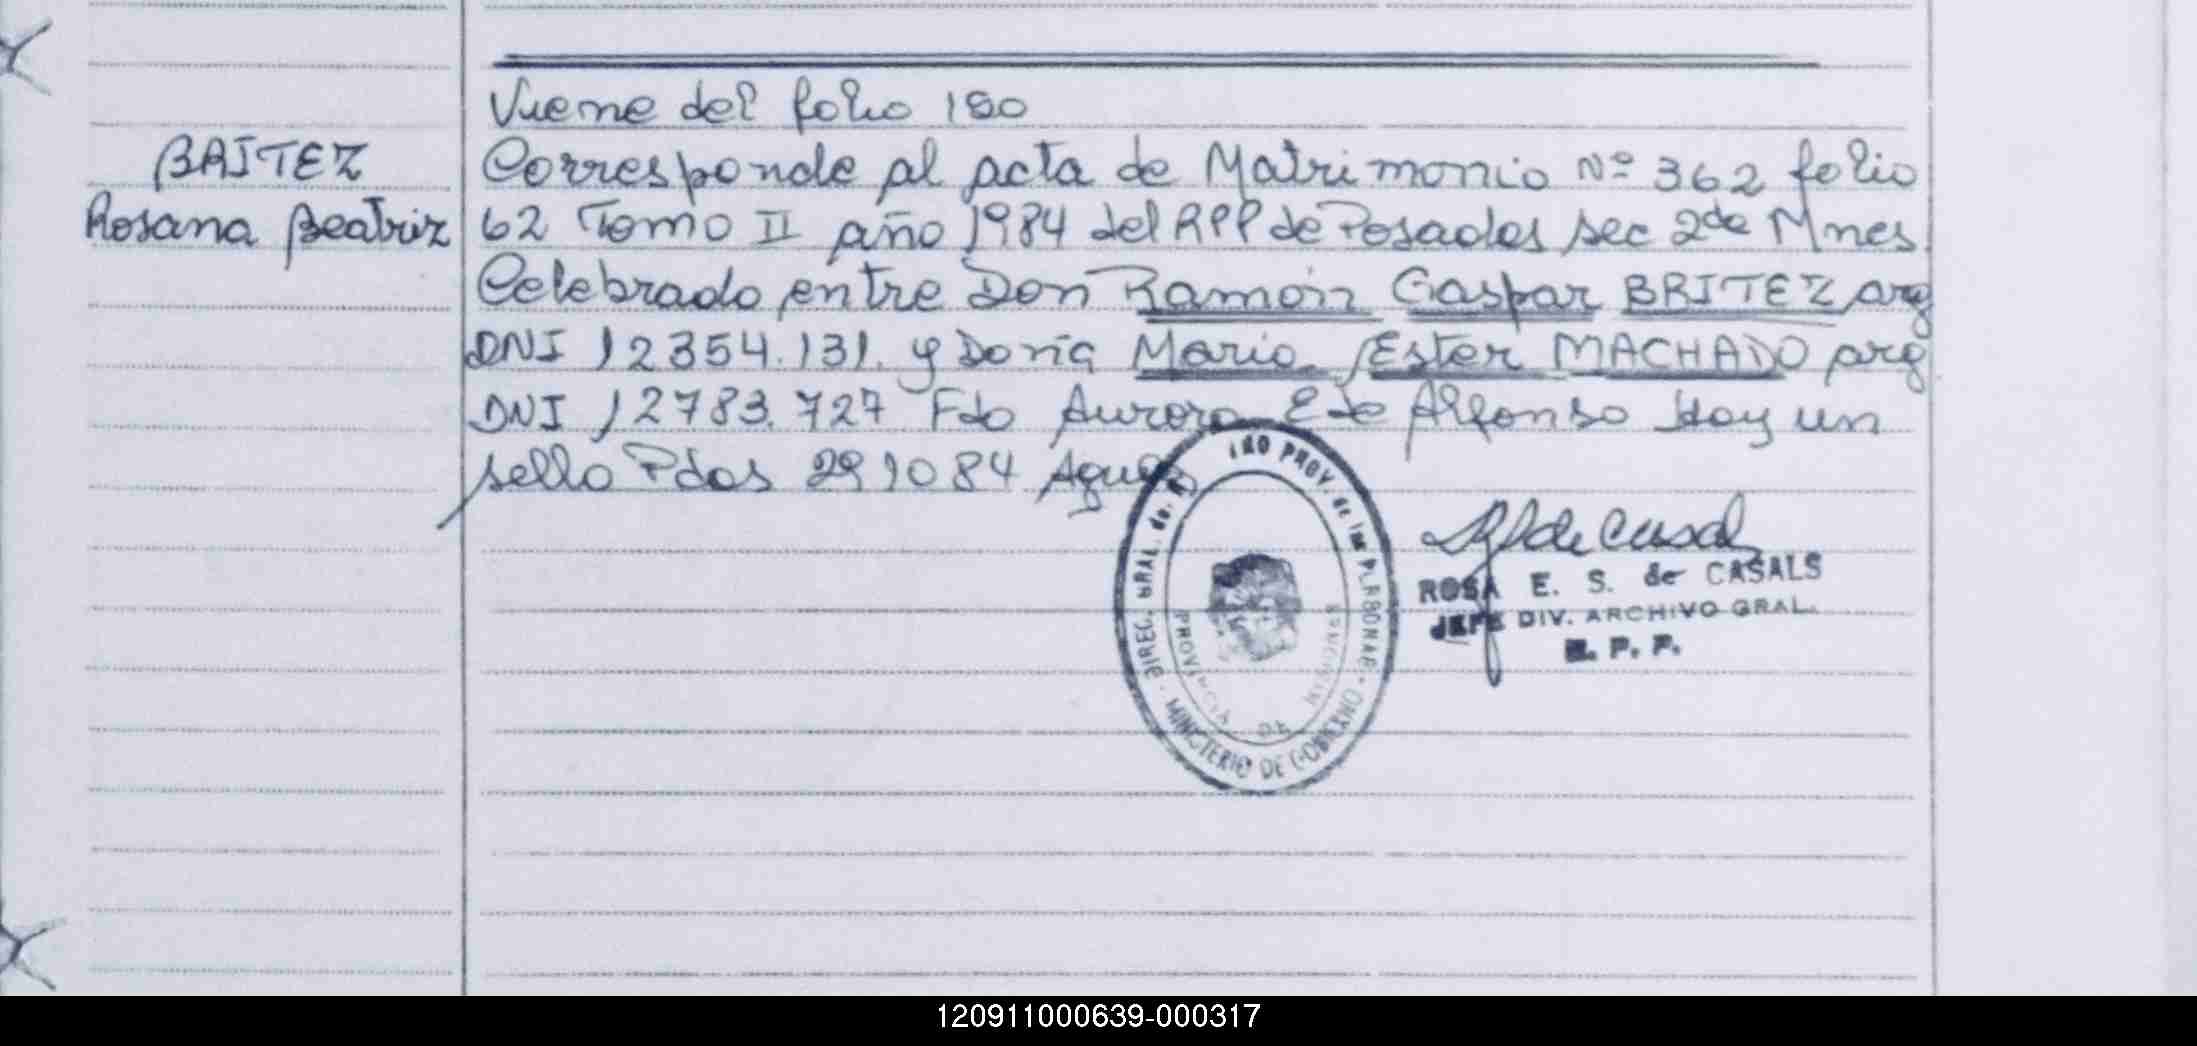 Viene del folio 180
BRITEZ
Rosana Beatriz
Corresponde al acta de Matrimonio Nº 362 folio
62 Tomo II año 1984 del RPP de Posadas sec 2da Mnes
Celebrado entre Don Ramón Gaspar BRITEZ arg
DNI 12354.131. y Doña Maria Ester MACHADO arg
DNI 12783.727 Fdo Aurora E de Alfonso Hay un
sello Pdas 29 10 84
DIREC. GRAL. de. PROV. de las PERSONAS - MINISTERIO DE GOBIERNO
PROVINCIA DE MISIONES
ROSA E. S. de CASALS
JEFE DIV. ARCHIVO GRAL.
R. P. P.
120911000639-000317